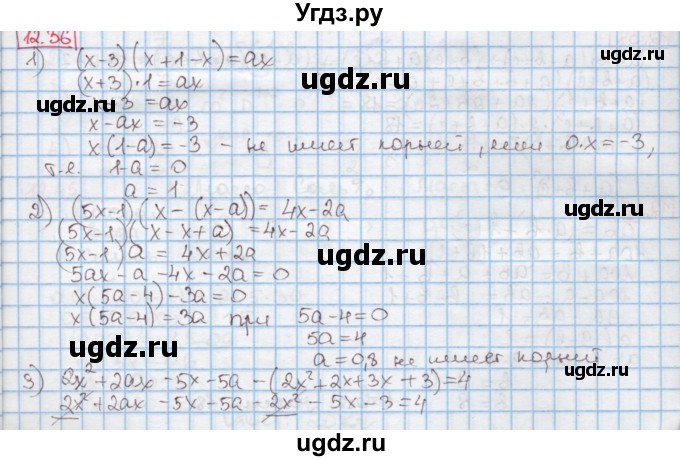 Угдз.ру
12.36
1) (x-3)(x+1-x)=ax
(x+3)·1=ax
+3=ax
x-ax=-3
x(1-a)=-3 - не имеет корней, если 0·x=-3,
т.е. 1-a=0
a=1
2) (5x-1)(x-(x-a))=4x-2a
(5x-1)(x-x+a)=4x-2a
(5x-1)a=4x+2a
5ax-a-4x-2a=0
x(5a-4)-3a=0
x(5a-4)=3a при 5a-4=0
5a=4
a=0,8 не имеет корней
3) 2x²+2ax-5x-5a-(2x²+2x+3x+3)=4
2x²+2ax-5x-5a-2x²-5x-3=4
uгдz.ru
uгдz.ru
uгдz.ru
uгдz.ru
uгдz.ru
uгдz.ru
uгдz.ru
uгдz.ru
Угдз.ру